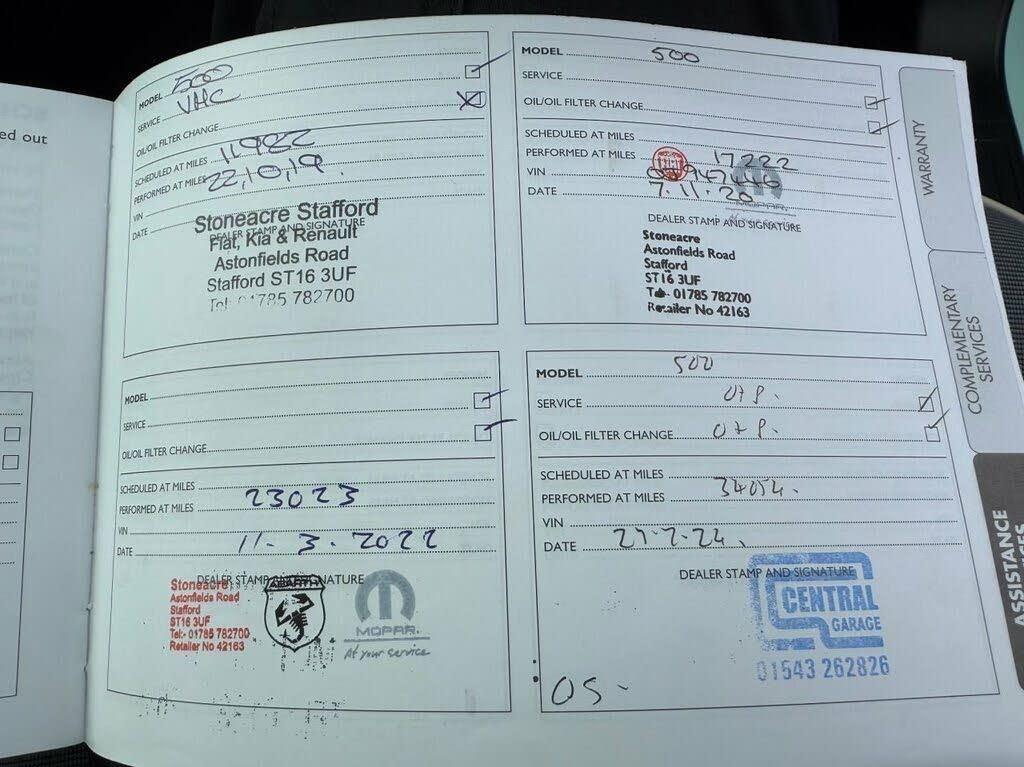 ed out
MODEL 500
SERVICE VHC
OIL/OIL FILTER CHANGE
SCHEDULED AT MILES 11982
PERFORMED AT MILES 22,10,19.
VIN
DATE
DEALER STAMP AND SIGNATURE
Stoneacre Stafford
Fiat, Kia & Renault
Astonfields Road
Stafford ST16 3UF
Tel: 01785 782700
MODEL 500
SERVICE
OIL/OIL FILTER CHANGE
SCHEDULED AT MILES
PERFORMED AT MILES 17222
VIN
DATE 7.11.20
MOPAR.
DEALER STAMP AND SIGNATURE
Stoneacre
Astonfields Road
Stafford
ST16 3UF
Tel:- 01785 782700
Retailer No 42163
MODEL
SERVICE
OIL/OIL FILTER CHANGE
SCHEDULED AT MILES
PERFORMED AT MILES 23023
VIN
DATE 11.3.2022
DEALER STAMP AND SIGNATURE
Stoneacre
Astonfields Road
Stafford
ST16 3UF
Tel:- 01785 782700
Retailer No 42163
ABARTH
MOPAR.
At your service
MODEL 500
SERVICE
OIL/OIL FILTER CHANGE
SCHEDULED AT MILES
PERFORMED AT MILES 34054.
VIN
DATE
DEALER STAMP AND SIGNATURE
CENTRAL
GARAGE
01543 262826
OS-
WARRANTY
COMPLEMENTARY
SERVICES
ASSISTANCE